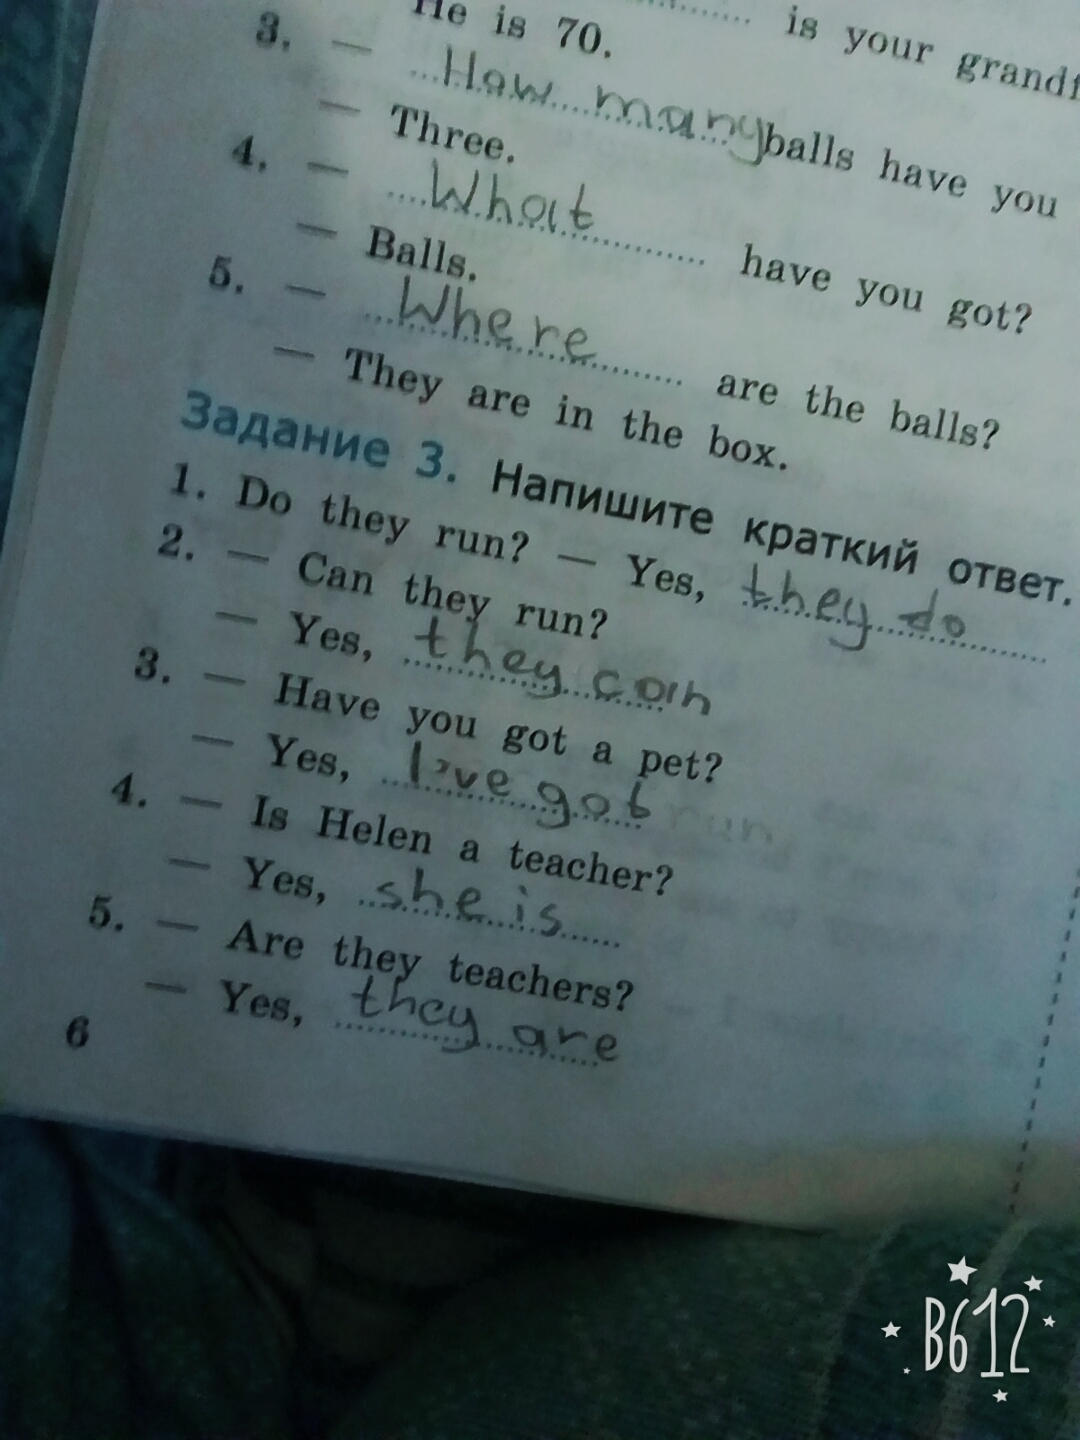 is your
He is 70.
3. — How many balls have you
— Three.
4. — What have you got?
— Balls.
5. — Where are the balls?
— They are in the box.
Задание 3. Напишите краткий ответ.
1. Do they run? — Yes, they do
2. — Can they run?
— Yes, they can
3. — Have you got a pet?
— Yes, I've got
4. — Is Helen a teacher?
— Yes, she is
5. — Are they teachers?
— Yes, they are
6
B612